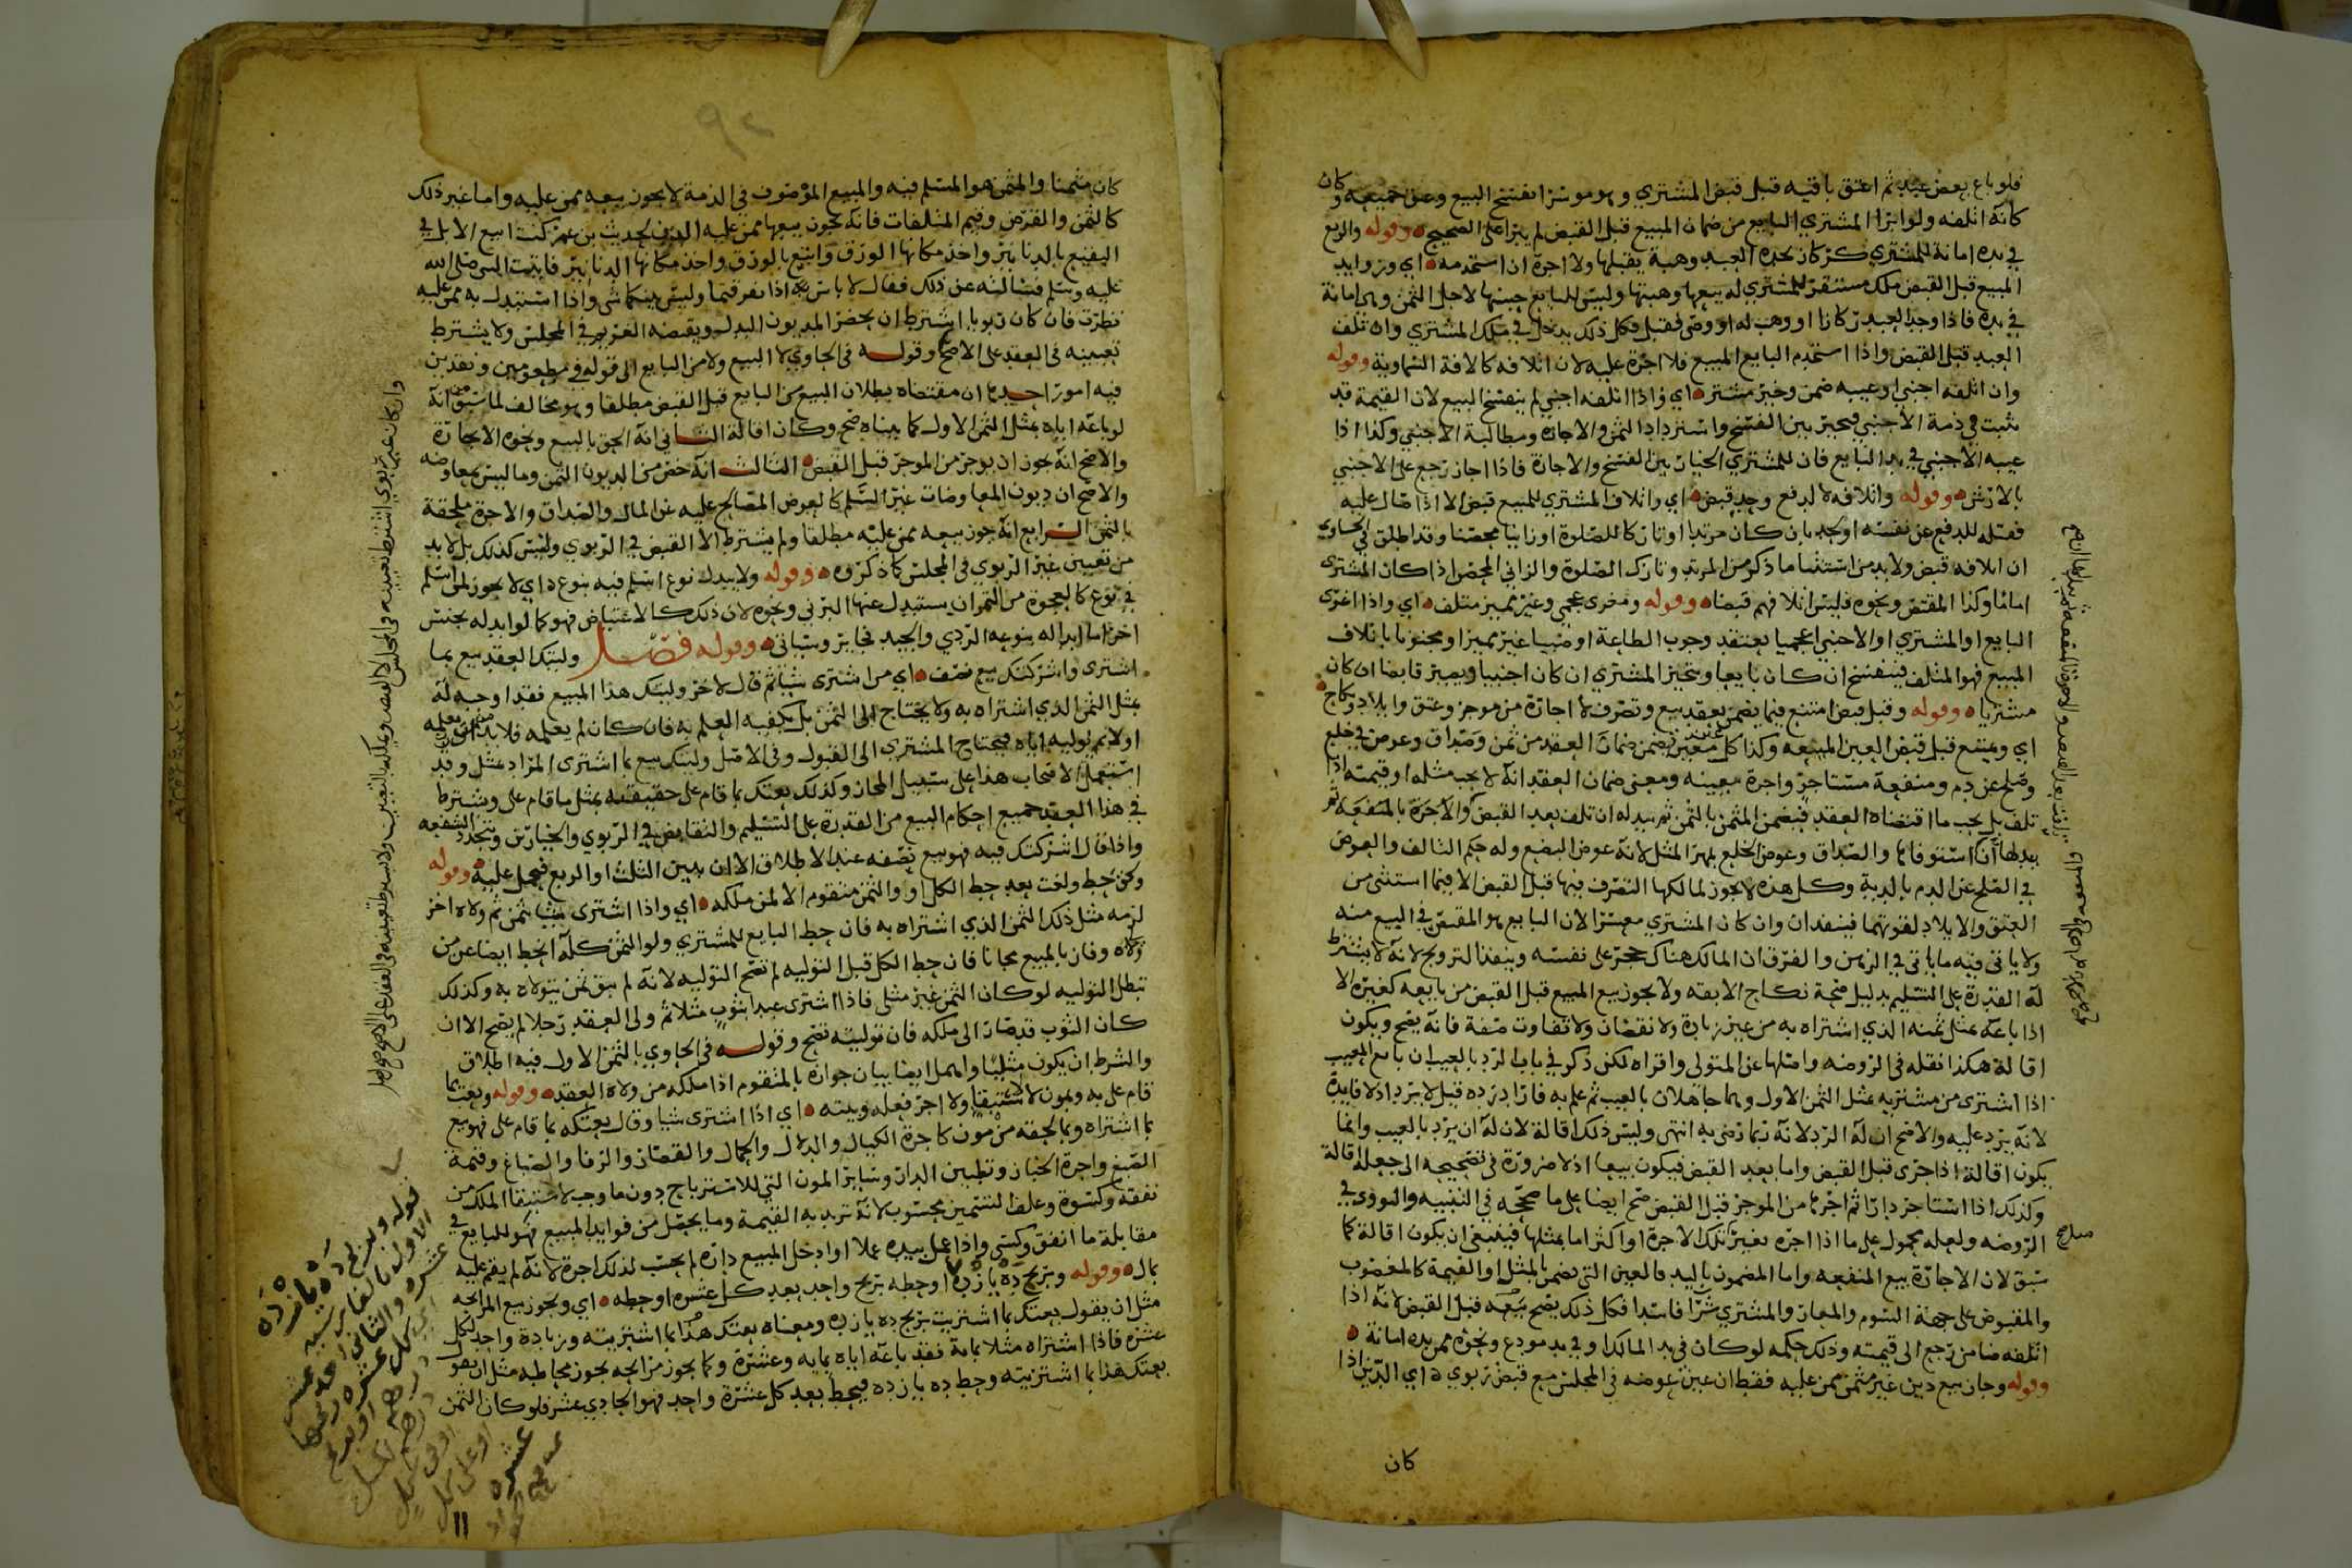 فلو باع بعض عبد ثم اعتق باقيه قبل قبض المشتري وهو موسرا انفسخ البيع وعتق جميعه وكان
كانه اتلفه ولو ابرا المشتري البايع من ضمان المبيع قبل القبض لم يبرا على الصحيح وقوله والريع
في يده امانة للمشتري كركاز يجده العبد وهبة يقبلها ولا اجرة ان استخدمه اي وزوايد
المبيع قبل القبض ملك مستقر للمشتري له بيعها وهبتها وليس للبايع حبسها لاجل الثمن وهي امانة
في يده فاذا وجد العبد ركازا او وهب له او وصى فقبل فكل ذلك يدخل في ملك المشتري وان تلف
العبد قبل القبض واذا استخدم البايع المبيع فلا اجرة عليه لان اتلافه كالافة السماوية وقوله
وان اتلفه اجنبي او عيبه ضمن وخير مشتر اي واذا اتلفه اجنبي لم ينفسخ البيع لان القيمة قد
ثبت في ذمة الاجنبي فيخير بين الفسخ واسترداد الثمن والاجازة ومطالبة الاجنبي وكذا اذا
عيبه الاجنبي في يد البايع فان للمشتري الخيار بين الفسخ والاجازة فاذا اجاز رجع على الاجنبي
بالارش وقوله واتلافه لا لدفع وحد قبض اي واتلاف المشتري للمبيع قبض الا اذا صال عليه
فقتله للدفع عن نفسه او لحد بان كان مرتدا او تاركا للصلوة او زانيا محصنا وقد اطلق في الحاوي
ان اتلافه قبض ولا بد من استثنا ما ذكر من المرتد وتارك الصلوة والزاني المحصن اذا كان المشتري
اماما وكذا المقتص ونحوه فليس اتلافهم قبضا وقوله ومغرى عجمي وغير مميز متلف اي واذا اغرى
البايع او المشتري او الاجنبي اعجميا يعتقد وجوب الطاعة او صبيا غير مميز او مجنونا باتلاف
المبيع فهو المتلف فينفسخ ان كان بايعا ويتخير المشتري ان كان اجنبيا ويصير قابضا ان كان
مشتريا وقوله وقبل قبض امتنع فيما يضمن بعقد بيع وتصرف لا اجارة من موجر وعتق وايلاد ونكاح
اي ويمتنع قبل قبض العين المبيعه وكذا كل معين يضمن ضمان العقد من ثمن وصداق وعوض في خلع
وصلح عن دم ومنفعة مستاجر واجرة معينه ومعنى ضمان العقد انه لا يجب مثله او قيمته اذا
تلف بل يجب ما اقتضاه العقد فيضمن المثمن بالثمن ثم يبدله ان تلف بعد القبض والاجرة بالمنفعة ثم
بدلها ان استوفاها والصداق وعوض الخلع بمهر المثل لانه عوض البضع وله حكم التالف والعوض
في الصلح عن الدم بالدية وكل هذه لا يجوز لمالكها التصرف فيها قبل القبض الا فيما استثني من
العتق والايلاد لقوتهما فينفذان وان كان المشتري معسرا لان البايع هو المقصر في البيع منه
ولا ياتي فيه ما ياتي في الرهن والفرق ان المالك هناك حجر على نفسه وينفذ التزويج لانه لا يشترط
له القدرة على التسليم بدليل صحة نكاح الابقه ولا يجوز بيع المبيع قبل القبض من بايعه كغيره الا
اذا باعه بمثل ثمنه الذي اشتراه به من غير زيادة ولا نقصان ولا تفاوت صفة فانه يصح ويكون
اقالة هكذا نقله في الروضه واصلها عن المتولي واقراه لكن ذكر في باب الرد بالعيب ان بايع المعيب
اذا اشترى من مشتريه بمثل الثمن الاول وهما جاهلان بالعيب ثم علم به فاراد رده قيل لا يرد اذ لا فايدة
لانه يرد عليه والاصح ان له الرد لانه ربما رضي به انتهى وليس ذلك اقالة لان له ان يرد بالعيب وانما
يكون اقالة اذا جرى قبل القبض واما بعد القبض فيكون بيعا اذ لا ضرورة في تصحيحه الى جعله اقالة
وكذلك اذا استاجر دارا ثم اجرها من الموجر قبل القبض صح ايضا على ما صححه في التنبيه والنووي في
الروضه ولعله محمول على ما اذا اجره بغير تلك الاجرة او اكثر اما بمثلها فينبغي ان يكون اقالة كما
سبق لان الاجارة بيع المنفعه واما المضمون باليد فالعين التي تضمن بالمثل او القيمة كالمغصوب
والمقبوض على جهة السوم والمعار والمشتري شرا فاسدا فكل ذلك يصح بيعه قبل القبض لانه اذا
اتلفه ضامن رجع الى قيمته وذلك حكمه لو كان في يد المالك او في يد مودع ونحوه ممن يده امانة
وقوله وجاز بيع دين غير مثمن ممن عليه فقط ان عين عوضه في المجلس مع قبض ربوي اي الدين اذا
كان
كان مثمنا والمثمن هو المسلم فيه والمبيع الموصوف في الذمة لا يجوز بيعه ممن عليه واما غير ذلك
كالثمن والقرض وقيم المتلفات فانه يجوز بيعها ممن عليه الدين لحديث بن عمر كنت ابيع الابل في
البقيع بالدنانير واخذ مكانها الورق وابيع بالورق واخذ مكانها الدنانير فاتيت النبي صلى الله
عليه وسلم فسالته عن ذلك فقال لا باس به اذا تفرقتما وليس بينكما شي واذا استبدل به ممن عليه
نظرت فان كان ربويا اشترط ان يحضر المديون البدل ويقبضه الغريم في المجلس ولا يشترط
تعيينه في العقد على الاصح وقوله في الحاوي لا المبيع ولا من البايع الى قوله في مطعومين ونقدين
فيه امور احدها ان مقتضاه بطلان البيع من البايع قبل القبض مطلقا وهو مخالف لما سبق من انه
لو باعه اياه بمثل الثمن الاول كما بيناه صح وكان اقالة الثاني انه الحق بالبيع ونحوه الاجارة
والاصح انه يجوز ان يوجر من الموجر قبل القبض الثالث انه خص من الديون الثمن وما ليس بمعاوضه
والاصح ان ديون المعاوضات غير السلم كالعوض المصالح عليه عن المال والصداق والاجرة ملحقة
بالثمن الرابع انه جوز بيعه ممن عليه مطلقا ولم يشترط الا القبض في الربوي وليس كذلك بل لا بد
من تعيين غير الربوي في المجلس كما ذكروه وقوله ولا يبدل نوع اسلم فيه بنوع اي لا يجوز لمن اسلم
في نوع كالعجوة من التمر ان يستبدل عنها البرني ونحوه لان ذلك كالاعتياض فهو كما لو ابدله بجنس
اخر اما ابداله بنوعه الردي والجيد فجايز وسياتي وقوله فصل وليتك العقد بيع بما
اشترى واشركتك بيع نصف اي من اشترى شيئا ثم قال لاخر وليتك هذا المبيع فقد اوجبه له
بمثل الثمن الذي اشتراه به ولا يحتاج الى الثمن بل يكفيه العلم به فان كان لم يعلمه فلا بد ان يعلمه
اولا ثم يوليه اياه فيحتاج المشتري الى القبول وفي الاصل وليتك بيع بما اشترى المراد بمثل وقد
استعمل الاصحاب هذا على سبيل المجاز وكذلك بعتك بما قام على حقيقته بمثل ما قام علي ويشترط
في هذا العقد جميع احكام البيع من القدرة على التسليم والتقابض في الربوي والخيارين وتتجدد الشفعه
واذا قال اشركتك فيه فهو بيع نصفه عند الاطلاق الا ان يبين الثلث او الربع فيحمل عليه وقوله
ولحق حط ولغت بعد حط الكل او والثمن متقوم الا لمن ملكه اي واذا اشترى شيئا بثمن ثم ولاه اخر
لزمه مثل ذلك الثمن الذي اشتراه به فان حط البايع للمشتري ولو الثمن كله انحط ايضا عن من
ولاه وفاز بالمبيع مجانا فان حط الكل قبل التوليه لم تصح التوليه لانه لم يبق ثمن يتولاه به وكذلك
تبطل التوليه لو كان الثمن غير مثلي فاذا اشترى عبدا بثوب مثلا ثم ولى العقد رجلا لم يصح الا ان
كان الثوب قد صار الى ملكه فان توليته تصح وقوله في الحاوي بالثمن الاول فيه اطلاق
والشرط ان يكون مثليا واهمل ايضا بيان جوازه بالمتقوم اذا ملكه من ولاه العقد وقوله وبعت بما
قام علي به وبمون لاستبقا ولا اجر فعله وبيته اي اذا اشترى شيا وقال بعتكه بما قام علي فهو بيع
بما اشتراه وبما لحقه من مون كاجرة الكيال والدلال والحمال والقصار والرفا والصباغ وقيمة
الصبغ واجرة الختان وتطيين الدار وساير المون التي للاسترباح دون ما وجب لاستبقا الملك من
نفقة وكسوة وعلف التسمين محسوب لانه تزيد به القيمة وما يحصل من فوايد المبيع فهو للبايع في
مقابلة ما انفق وكسى واذا عمل بيده عملا او ادخل المبيع داره لم يحسب لذلك اجرة لانه لم يقم عليه
بمال وقوله وبربح ده يازده او حطه بربح واحد بعد كل عشره او حطه اي ويجوز بيع المرابحه
مثل ان يقول بعتك بما اشتريت بربح ده يازده ومعناه بعتك هذا بما اشتريته وزيادة واحد لكل
عشره فاذا اشتراه مثلا بماية فقد باعه اياه بمايه وعشرة وكما يجوز مرابحه يجوز محاطه مثل ان يقول
بعتك هذا بما اشتريته وحط ده يازده فيحط بعد كل عشرة واحد فهو الحادي عشر فلو كان الثمن